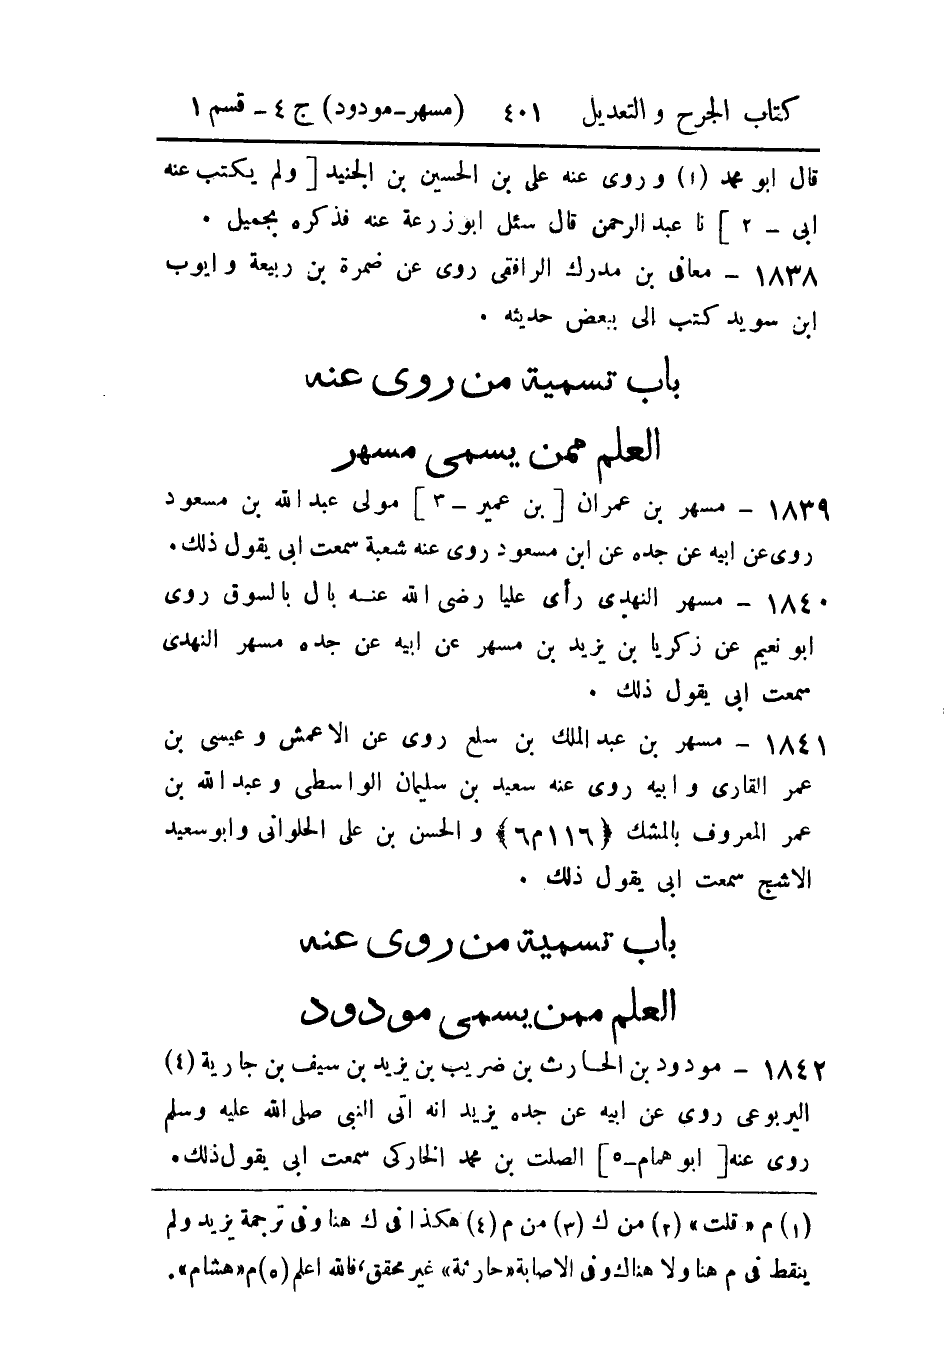 كتاب الجرح والتعديل ٤٠١ (مسهر-مودود) ج ٤ - قسم ١
قال ابو محمد (١) وروى عنه على بن الحسين بن الجنيد [ ولم يكتب عنه
ابى - ٢ ] نا عبد الرحمن قال سئل ابو زرعة عنه فذكره بجميل .
١٨٣٨ - معافى بن مدرك الرافقى روى عن ضمرة بن ربيعة وايوب
ابن سويد كتب الى ببعض حديثه .
باب تسمية من روى عنه
العلم ممن يسمى مسهر
١٨٣٩ - مسهر بن عمران [ بن عمير - ٣ ] مولى عبد الله بن مسعود
روى عن ابيه عن جده عن ابن مسعود روى عنه شعبة سمعت ابى يقول ذلك .
١٨٤٠ - مسهر النهدى رأى عليا رضى الله عنه بال بالسوق روى
ابو نعيم عن زكريا بن يزيد بن مسهر عن ابيه عن جده مسهر النهدى
سمعت ابى يقول ذلك .
١٨٤١ - مسهر بن عبد الملك بن سلع روى عن الاعمش وعيسى بن
عمر القارى وابيه روى عنه سعيد بن سليمان الواسطى وعبد الله بن
عمر المعروف بالمشك ﴿١١٦م٦﴾ والحسن بن على الحلوانى وابو سعيد
الاشج سمعت ابى يقول ذلك .
باب تسمية من روى عنه
العلم ممن يسمى مودود
١٨٤٢ - مودود بن الحارث بن ضريب بن يزيد بن سيف بن جارية (٤)
اليربوعى روى عن ابيه عن جده يزيد انه اتى النبى صلى الله عليه وسلم
روى عنه [ ابو همام-٥ ] الصلت بن محمد الخاركى سمعت ابى يقول ذلك .
(١) م «قلت» (٢) من ك (٣) من م (٤) هكذا فى ك هنا وفى ترجمة يزيد ولم
ينقط فى م هنا ولا هناك وفى الاصابة «حارثة» غير محقق، فالله اعلم (٥) م «هشام» .